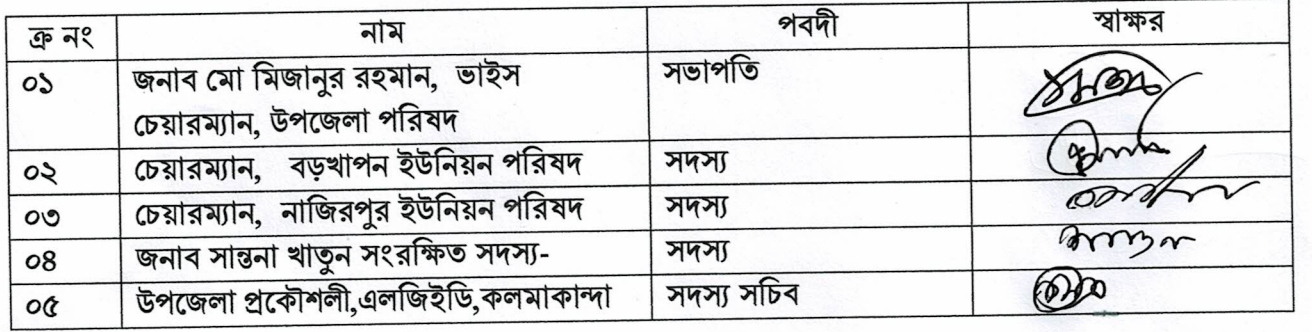 ক্র নং নাম পবদী স্বাক্ষর
০১ জনাব মো মিজানুর রহমান, ভাইস সভাপতি
চেয়ারম্যান, উপজেলা পরিষদ
০২ চেয়ারম্যান, বড়খাপন ইউনিয়ন পরিষদ সদস্য
০৩ চেয়ারম্যান, নাজিরপুর ইউনিয়ন পরিষদ সদস্য
০৪ জনাব সান্তনা খাতুন সংরক্ষিত সদস্য- সদস্য
০৫ উপজেলা প্রকৌশলী,এলজিইডি,কলমাকান্দা সদস্য সচিব